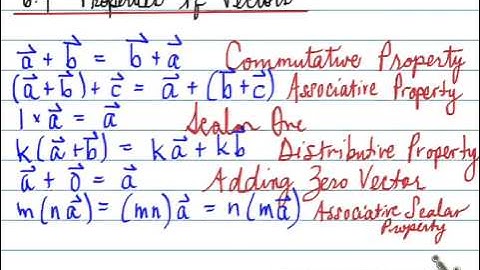 6.4 Properties of Vectors
a⃗ + b⃗ = b⃗ + a⃗ Commutative Property
(a⃗ + b⃗) + c⃗ = a⃗ + (b⃗ + c⃗) Associative Property
1 × a⃗ = a⃗ Scalar One
k(a⃗ + b⃗) = ka⃗ + kb⃗ Distributive Property
a⃗ + 0⃗ = a⃗ Adding Zero Vector
m(na⃗) = (mn)a⃗ = n(ma⃗) Associative Scalar
Property